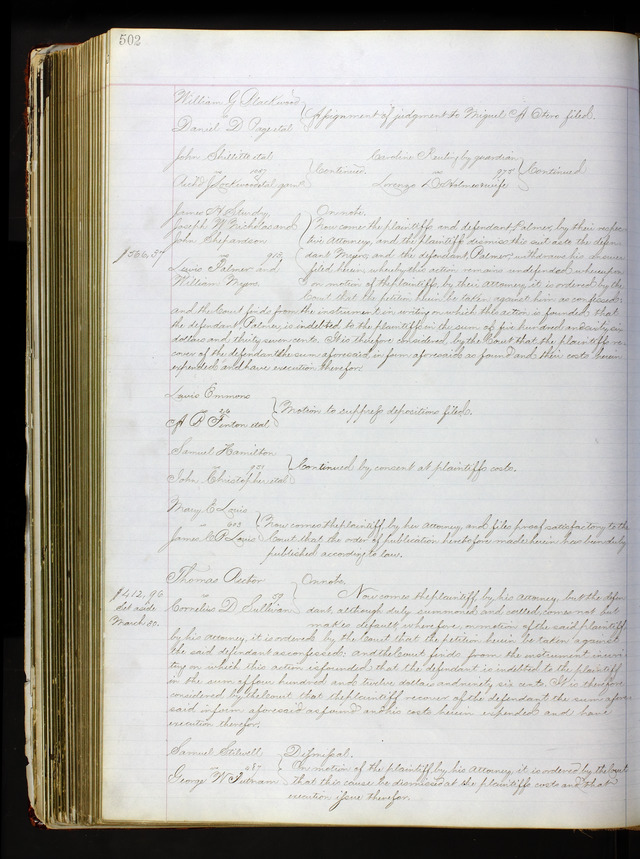 502
William G Blackwood
vs
Daniel D Page et al
Assignment of judgment to Miguel A Otero filed.
John Shillitto et al
vs
Continued.
Caroline by guardian
vs 975
Lorenzo Holmes & wife
Continued
James H Sturdy,
Joseph W Nicholas and
John Shepardson
vs 912,
Lewis Palmer and
William Myers.
$566.37
On note.
Now come the plaintiffs and defendant Palmer, by their respec
tive Attorneys, and the plaintiffs dismiss this suit as to the defen
dant Myers, and the defendant Palmer, withdraws his answer
filed herein, whereby this action remains undefended, whereupon
on motion of the plaintiffs, by their attorney, it is ordered by the
Court that the petition herein be taken against him as confessed:
and the Court finds from the instruments in writing on which this action is founded, that
the defendant Palmer, is indebted to the plaintiffs in the sum of five hundred and sixty six
dollars and thirty seven cents. It is therefore considered, by the Court that the plaintiffs re
cover of the defendant the sum aforesaid, in form aforesaid as found and their costs herein
expended and have execution therefor.
Louis Emmons
vs
A B Fenton et al
Motion to suppress depositions filed.
Samuel Hamilton
vs
John Christopher et al
Continued by consent at plaintiffs costs.
Mary E Louis
vs 903
James C P Louis
Now comes the plaintiff by her attorney, and files proof satisfactory to the
Court that the order of publication heretofore made herein has been duly
published according to law.
Thomas Rector
vs 59
Cornelius D Sullivan
$412,96
Set aside
March 30.
On note.
Now comes the plaintiff by his Attorney, but the defen
dant, although duly summoned and called comes not but
makes default wherefore, on motion of the said plaintiff
by his attorney, it is ordered by the Court that the petition herein be taken against
the said defendant as confessed: and the Court finds from the instrument in wri
ting on which this action is founded, that the defendant is indebted to the plaintiff
in the sum of four hundred and twelve dollars and ninety six cents. It is therefore
considered by the Court that the plaintiff recover of the defendant the sum afore
said in form aforesaid as found and his costs herein expended and have
execution therefor.
Samuel Stilwell
vs 687
George W Putnam
Dismissal.
On motion of the plaintiff by his Attorney, it is ordered by the Court
that this cause be dismissed at the plaintiffs costs and that
execution issue therefor.